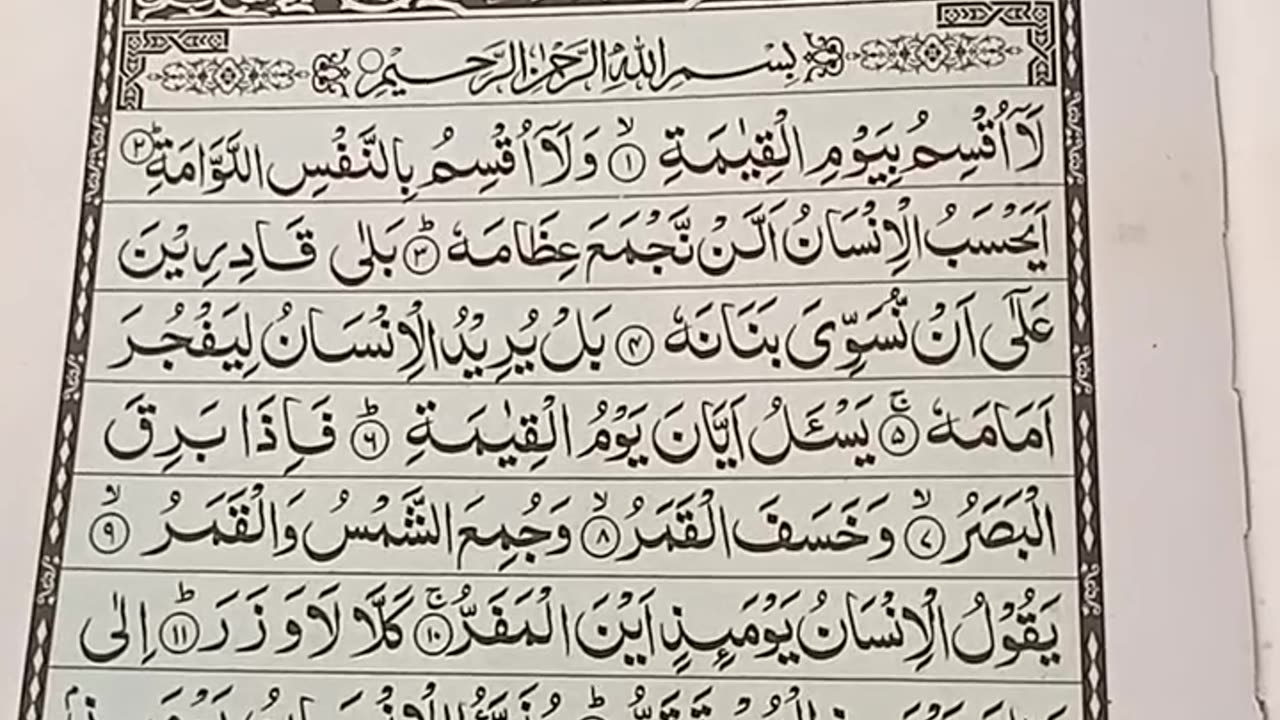 بِسْمِ اللهِ الرَّحْمٰنِ الرَّحِيْمِ
لَآ اُقْسِمُ بِيَوْمِ الْقِيٰمَةِ ۙ﴿۱﴾ وَلَآ اُقْسِمُ بِالنَّفْسِ اللَّوَّامَةِ ؕ﴿۲﴾
اَيَحْسَبُ الْاِنْسَانُ اَلَّنْ نَّجْمَعَ عِظَامَهٗ ؕ﴿۳﴾ بَلٰى قَادِرِيْنَ
عَلٰٓى اَنْ نُّسَوِّىَ بَنَانَهٗ ﴿۴﴾ بَلْ يُرِيْدُ الْاِنْسَانُ لِيَفْجُرَ
اَمَامَهٗ ۚ﴿۵﴾ يَسْـَٔلُ اَيَّانَ يَوْمُ الْقِيٰمَةِ ؕ﴿۶﴾ فَاِذَا بَرِقَ
الْبَصَرُ ۙ﴿۷﴾ وَخَسَفَ الْقَمَرُ ۙ﴿۸﴾ وَجُمِعَ الشَّمْسُ وَالْقَمَرُ ۙ﴿۹﴾
يَقُوْلُ الْاِنْسَانُ يَوْمَئِذٍ اَيْنَ الْمَفَرُّ ۚ﴿۱۰﴾ كَلَّا لَا وَزَرَ ؕ﴿۱۱﴾ اِلٰى